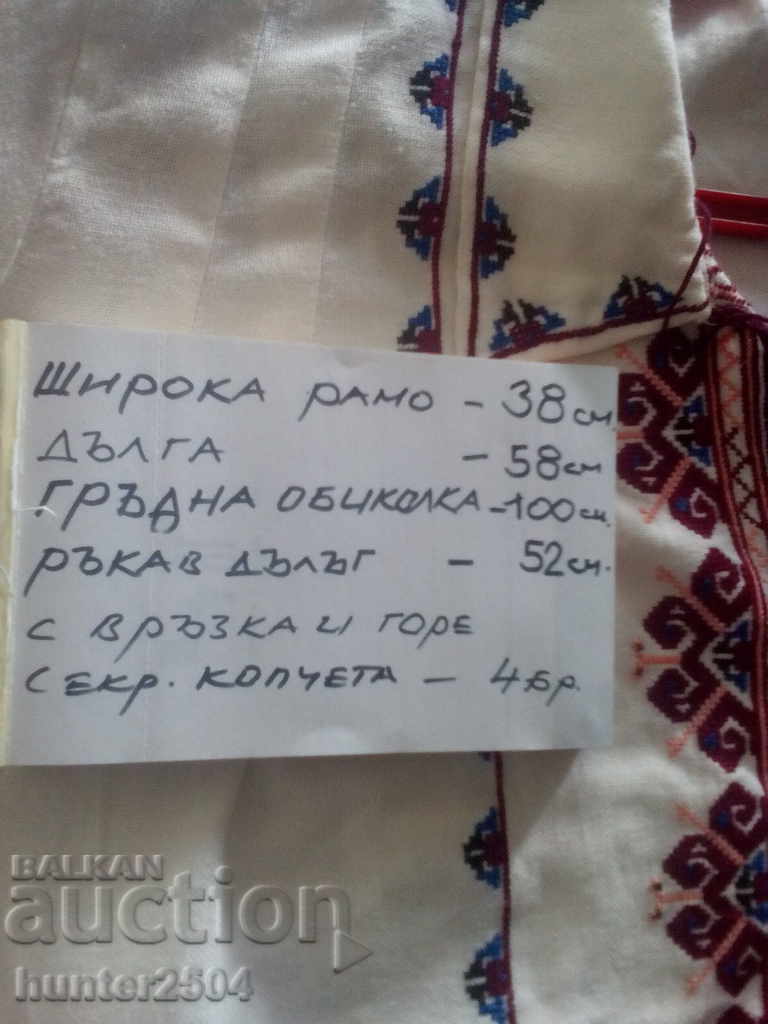 ШИРОКА РАМО - 38 см.
ДЪЛГА - 58 см
ГРЪДНА ОБИКОЛКА - 100 см.
РЪКАВ ДЪЛЪГ - 52 см.
С ВРЪЗКА И ГОРЕ
СЕКР. КОПЧЕТА - 4 бр.
BALKAN
auction
hunter2504